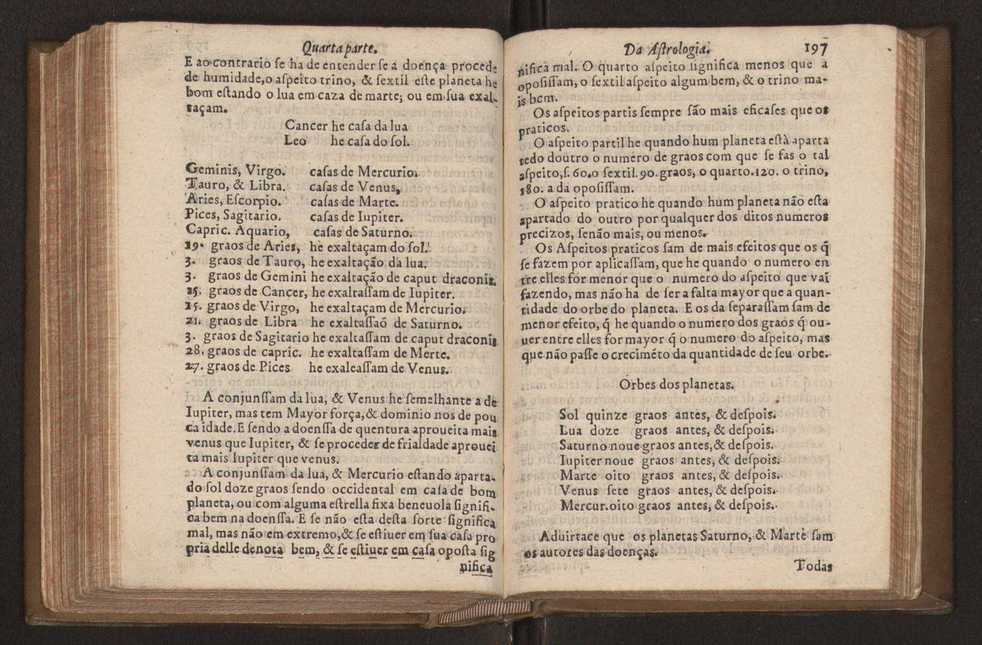 Quarta parte.
E ao contrario se ha de entender se a doença procede
de humidade, o aſpeito trino, & ſextil eſte planeta he
bom eſtando o lua em caza de marte; ou em ſua exal-
taçam.
Cancer he caſa da lua
Leo he caſa do ſol.
Geminis, Virgo. caſas de Mercurio.
Tauro, & Libra. caſas de Venus,
Aries, Eſcorpio. caſas de Marte.
Pices, Sagitario. caſas de Iupiter.
Capric. Aquario, caſas de Saturno.
19. graos de Aries, he exaltaçam do ſol.
3. graos de Tauro, he exaltação da lua.
3. graos de Gemini he exaltação de caput draconis.
25. graos de Cancer, he exaltaſſam de Iupiter.
15. graos de Virgo, he exaltaçam de Mercurio.
21. graos de Libra he exaltaſſaõ de Saturno.
3. graos de Sagitario he exaltaſſam de caput draconis
28. graos de capric. he exaltaſſam de Merte.
27. graos de Pices he exaleaſſam de Venus.
A conjunſſam da lua, & Venus he ſemelhante a de
Iupiter, mas tem Mayor força, & dominio nos de pou
ca idade. E ſendo a doenſſa de quentura aproueita mais
venus que Iupiter, & ſe proceder de frialdade aprouei
ta mais Iupiter que venus.
A conjunſſam da lua, & Mercurio eſtando aparta-
do ſol doze graos ſendo occidental em caſa de bom
planeta, ou com alguma eſtrella fixa beneuola ſignifi-
ca bem na doenſſa. E ſe não eſta deſta ſorte ſignifica
mal, mas não em extremo, & ſe eſtiuer em ſua caſa pro
pria delle denota bem, & ſe eſtiuer em caſa opoſta ſig
nifica
Da Aſtrologia. 197
nifica mal. O quarto aſpeito ſignifica menos que a
opoſiſſam, o ſextil aſpeito algum bem, & o trino ma-
is bem.
Os aſpeitos partis ſempre ſão mais eficaſes que os
praticos.
O aſpeito partil he quando hum planeta eſtà aparta
tedo doutro o numero de graos com que ſe fas o tal
aſpeito, ſ. 60. o ſextil. 90. graos, o quarto. 120. o trino,
180. a da opoſiſſam.
O aſpeito pratico he quando hum planeta não eſta
apartado do outro por qualquer dos ditos numeros
precizos, ſenão mais, ou menos.
Os Aſpeitos praticos ſam de mais efeitos que os q̃
ſe fazem por aplicaſſam, que he quando o numero en
tre elles for menor que o numero do aſpeito que vai
fazendo, mas não ha de ſer a falta mayor que a quan-
tidade do orbe do planeta. E os da ſeparaſſam ſam de
menor efeito, q̃ he quando o numero dos graos q̃ ou-
uer entre elles for mayor q̃ o numero do aſpeito, mas
que não paſſe o crecimẽto da quantidade de ſeu orbe.
Orbes dos planetas.
Sol quinze graos antes, & deſpois.
Lua doze graos antes, & deſpois.
Saturno noue graos antes, & deſpois.
Iupiter noue graos antes, & deſpois.
Marte oito graos antes, & deſpois.
Venus ſete graos antes, & deſpois.
Mercur. oito graos antes, & deſpois.
Aduirtace que os planetas Saturno, & Marte ſam
os autores das doenças.
Todas